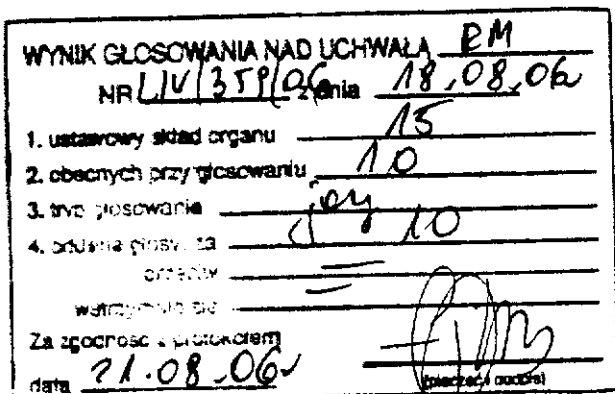 WYNIK GŁOSOWANIA NAD UCHWAŁĄ RM
NR LIV/359/06 z dnia 18.08.06
1. ustawowy skład organu 15
2. obecnych przy głosowaniu 10
3. tryb głosowania
4. oddane głosy: za 10
przeciw =
wstrzymało się =
Za zgodność z protokołem
data 21.08.06
(pieczęć i podpis)